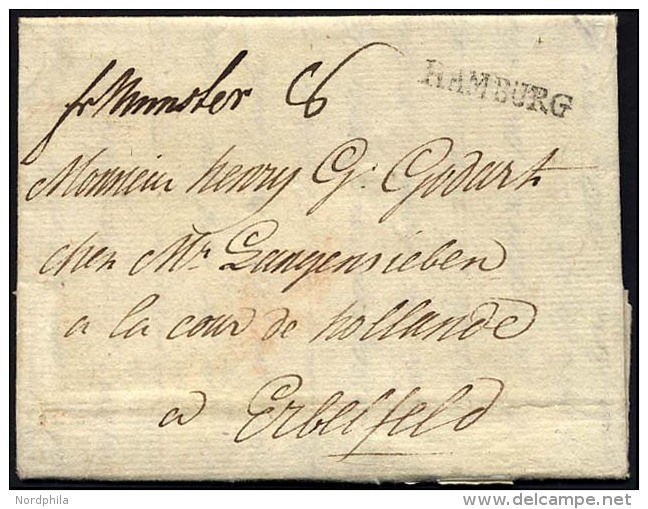 HAMBURG
fr Munster 6
Monsieur henry G: Godart
chez Mr. Langensieben
a la cour de hollande
a Erbelfeld
Nordphila
www.delcampe.net